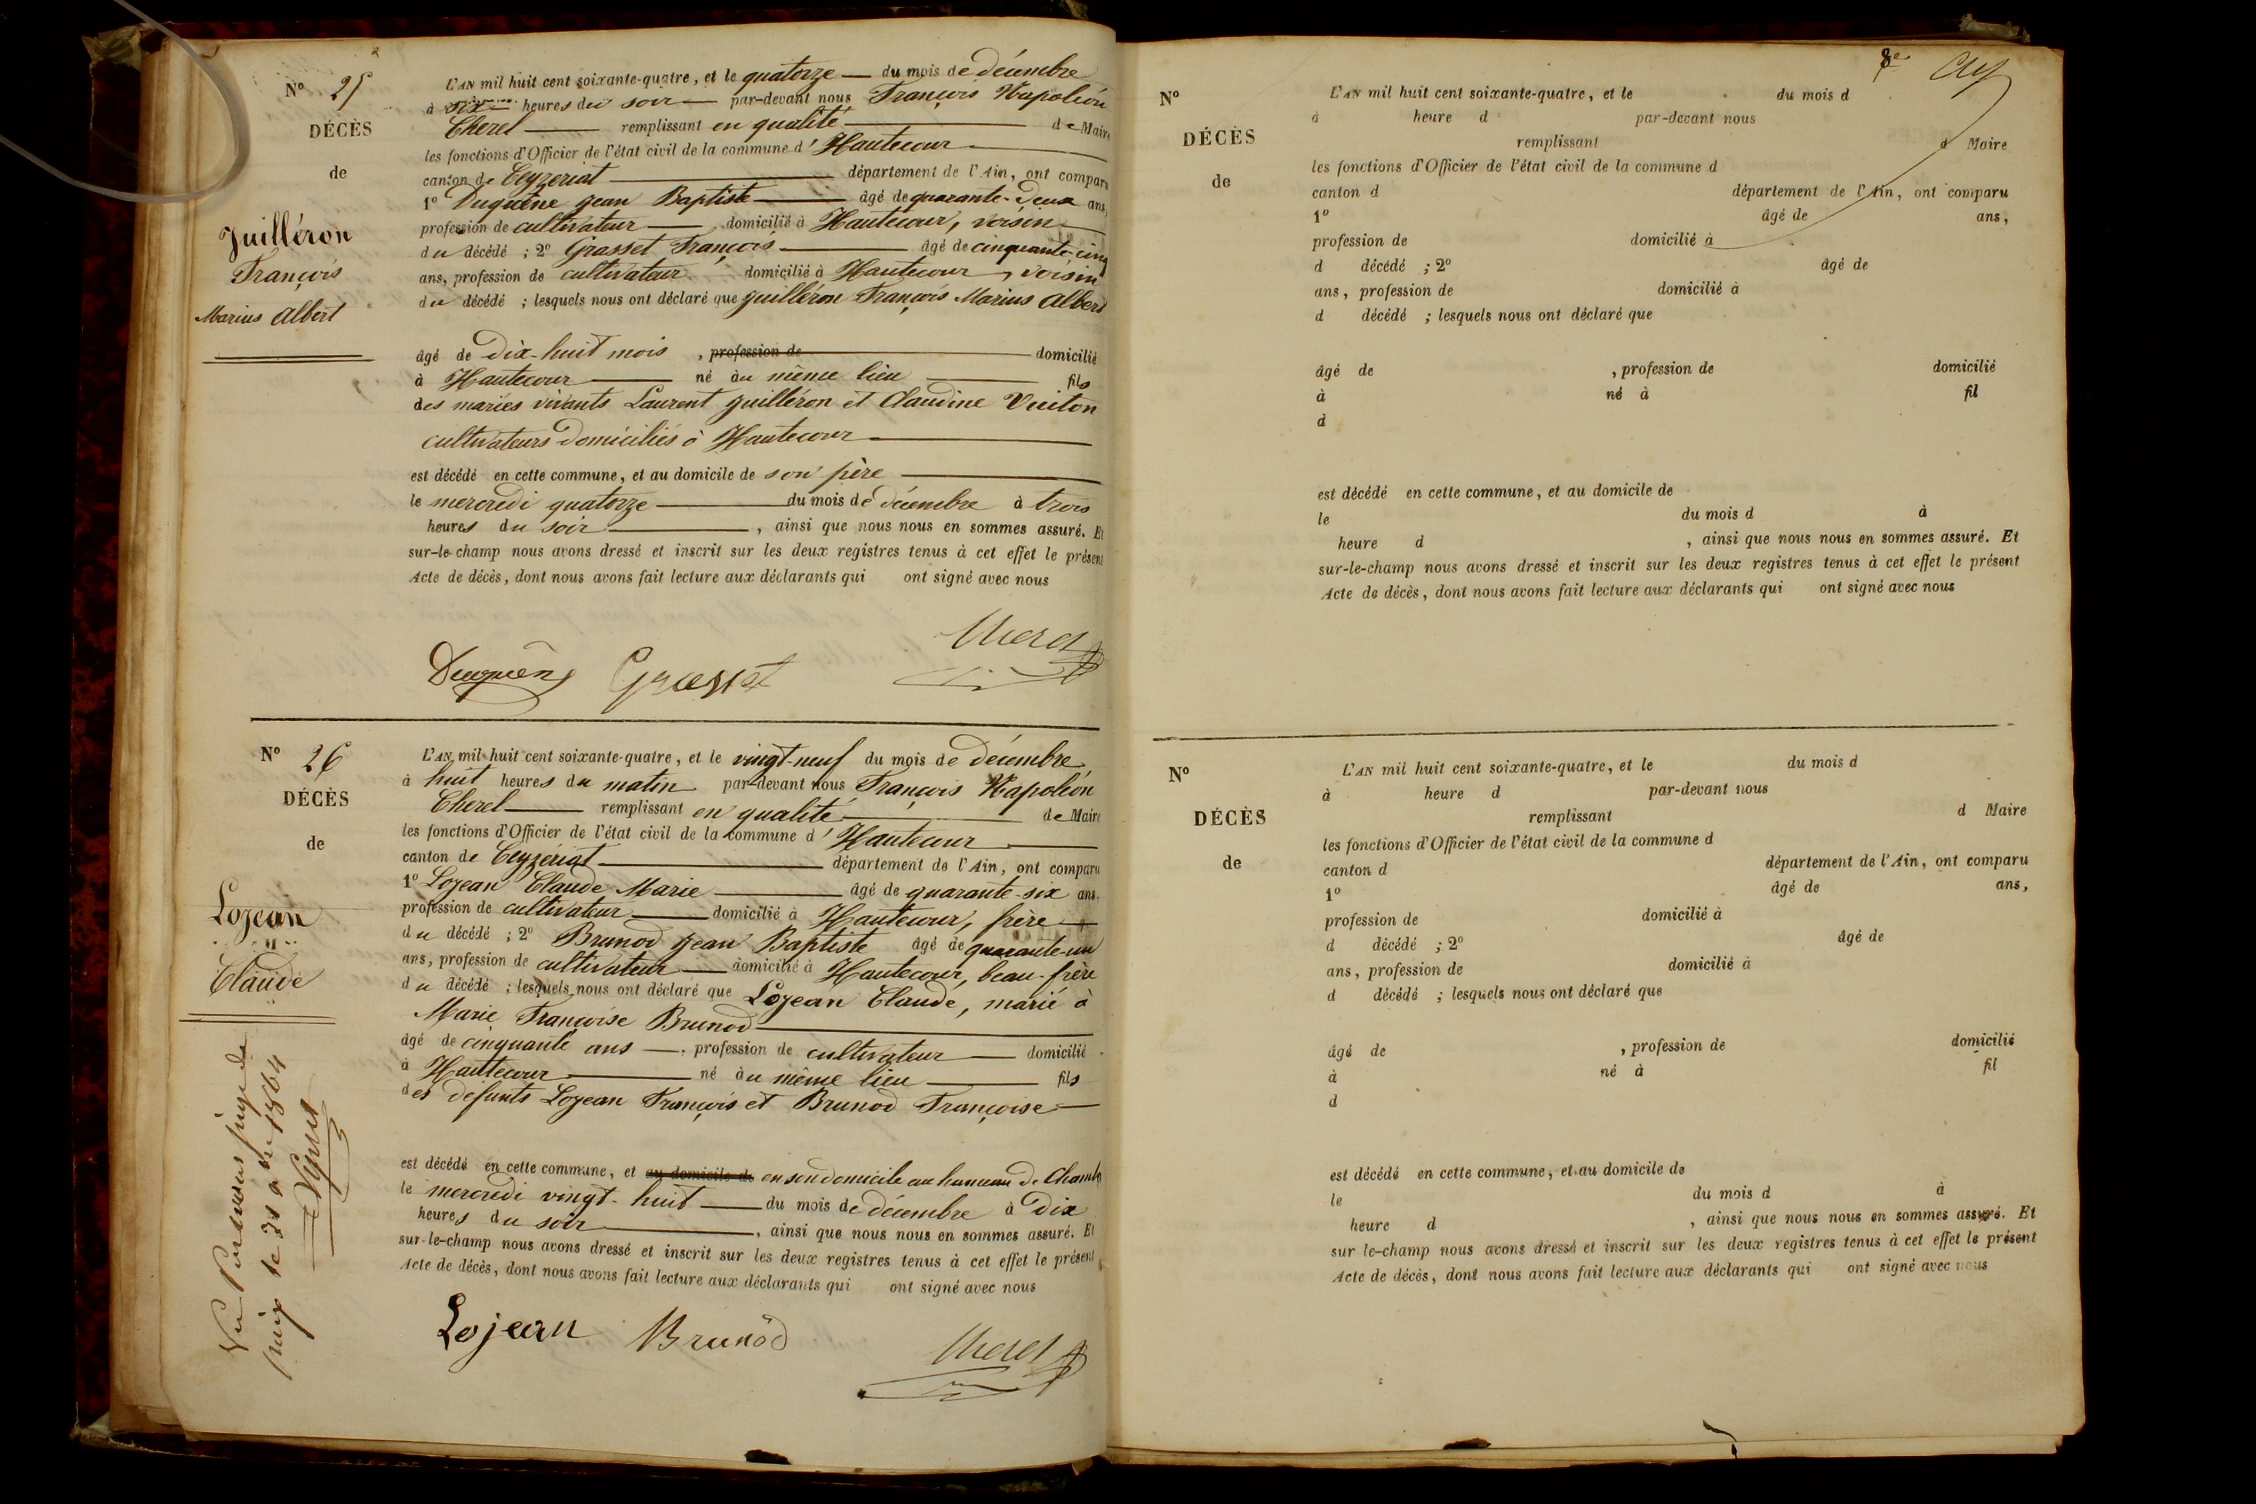 N° 25
DÉCÈS
de
Juilléron
François
Marius Albert
L'AN mil huit cent soixante-quatre, et le quatorze du mois de Décembre
à heures du soir par-devant nous François Napoléon
Cherel remplissant en qualité de Maire
les fonctions d'Officier de l'état civil de la commune d'Hautecour
canton de Ceyzeriat département de l'Ain, ont comparu
1° Duquêne Jean Baptiste âgé de quarante-deux ans,
profession de cultivateur domicilié à Hautecour, voisin
du décédé ; 2° Grasset François âgé de cinquante-cinq
ans, profession de cultivateur domicilié à Hautecour, voisin
du décédé ; lesquels nous ont déclaré que Juilléron François Marius Albert
âgé de Dix-huit mois , profession de domicilié
à Hautecour né au même lieu fils
des mariés vivants Laurent Juilléron et Claudine Vuiton
cultivateurs domiciliés à Hautecour
est décédé en cette commune, et au domicile de son père
le mercredi quatorze du mois de décembre à trois
heures du soir , ainsi que nous nous en sommes assuré. Et
sur-le-champ nous avons dressé et inscrit sur les deux registres tenus à cet effet le présent
Acte de décès, dont nous avons fait lecture aux déclarants qui ont signé avec nous
Cherel
Duquêne Grasset
N° 26
DÉCÈS
de
Lojean
Claude
L'AN mil huit cent soixante-quatre, et le vingt-neuf du mois de Décembre
à huit heures du matin par-devant nous François Napoléon
Cherel remplissant en qualité de Maire
les fonctions d'Officier de l'état civil de la commune d'Hautecour
canton de Ceyzériat département de l'Ain, ont comparu
1° Lojean Claude Marie âgé de quarante-six ans,
profession de cultivateur domicilié à Hautecour, frère
du décédé ; 2° Brunod Jean Baptiste âgé de quarante-un
ans, profession de cultivateur domicilié à Hautecour, beau-frère
du décédé ; lesquels nous ont déclaré que Lojean Claude, marié à
Marie Françoise Brunod
âgé de cinquante ans , profession de cultivateur domicilié
à Hautecour né au même lieu fils
des défunts Lojean François et Brunod Françoise
est décédé en cette commune, et au domicile de en son domicile au hameau de Chambo
le mercredi vingt-huit du mois de décembre à Dix
heures du soir , ainsi que nous nous en sommes assuré. Et
sur-le-champ nous avons dressé et inscrit sur les deux registres tenus à cet effet le présent
Acte de décès, dont nous avons fait lecture aux déclarants qui ont signé avec nous
Lojean Brunod
Cherel
Vu Par nous juge de
paix le 31 1864
8e
N°
DÉCÈS
de
L'AN mil huit cent soixante-quatre, et le du mois d
à heure d par-devant nous
remplissant d Maire
les fonctions d'Officier de l'état civil de la commune d
canton d département de l'Ain, ont comparu
1° âgé de ans,
profession de domicilié à
d décédé ; 2° âgé de
ans, profession de domicilié à
d décédé ; lesquels nous ont déclaré que
âgé de , profession de domicilié
à né à fil
d
est décédé en cette commune, et au domicile de
le du mois d à
heure d , ainsi que nous nous en sommes assuré. Et
sur-le-champ nous avons dressé et inscrit sur les deux registres tenus à cet effet le présent
Acte de décès, dont nous avons fait lecture aux déclarants qui ont signé avec nous
N°
DÉCÈS
de
L'AN mil huit cent soixante-quatre, et le du mois d
à heure d par-devant nous
remplissant d Maire
les fonctions d'Officier de l'état civil de la commune d
canton d département de l'Ain, ont comparu
1° âgé de ans,
profession de domicilié à
d décédé ; 2° âgé de
ans, profession de domicilié à
d décédé ; lesquels nous ont déclaré que
âgé de , profession de domicilié
à né à fil
d
est décédé en cette commune, et au domicile de
le du mois d à
heure d , ainsi que nous nous en sommes assuré. Et
sur le-champ nous avons dressé et inscrit sur les deux registres tenus à cet effet le présent
Acte de décès, dont nous avons fait lecture aux déclarants qui ont signé avec nous